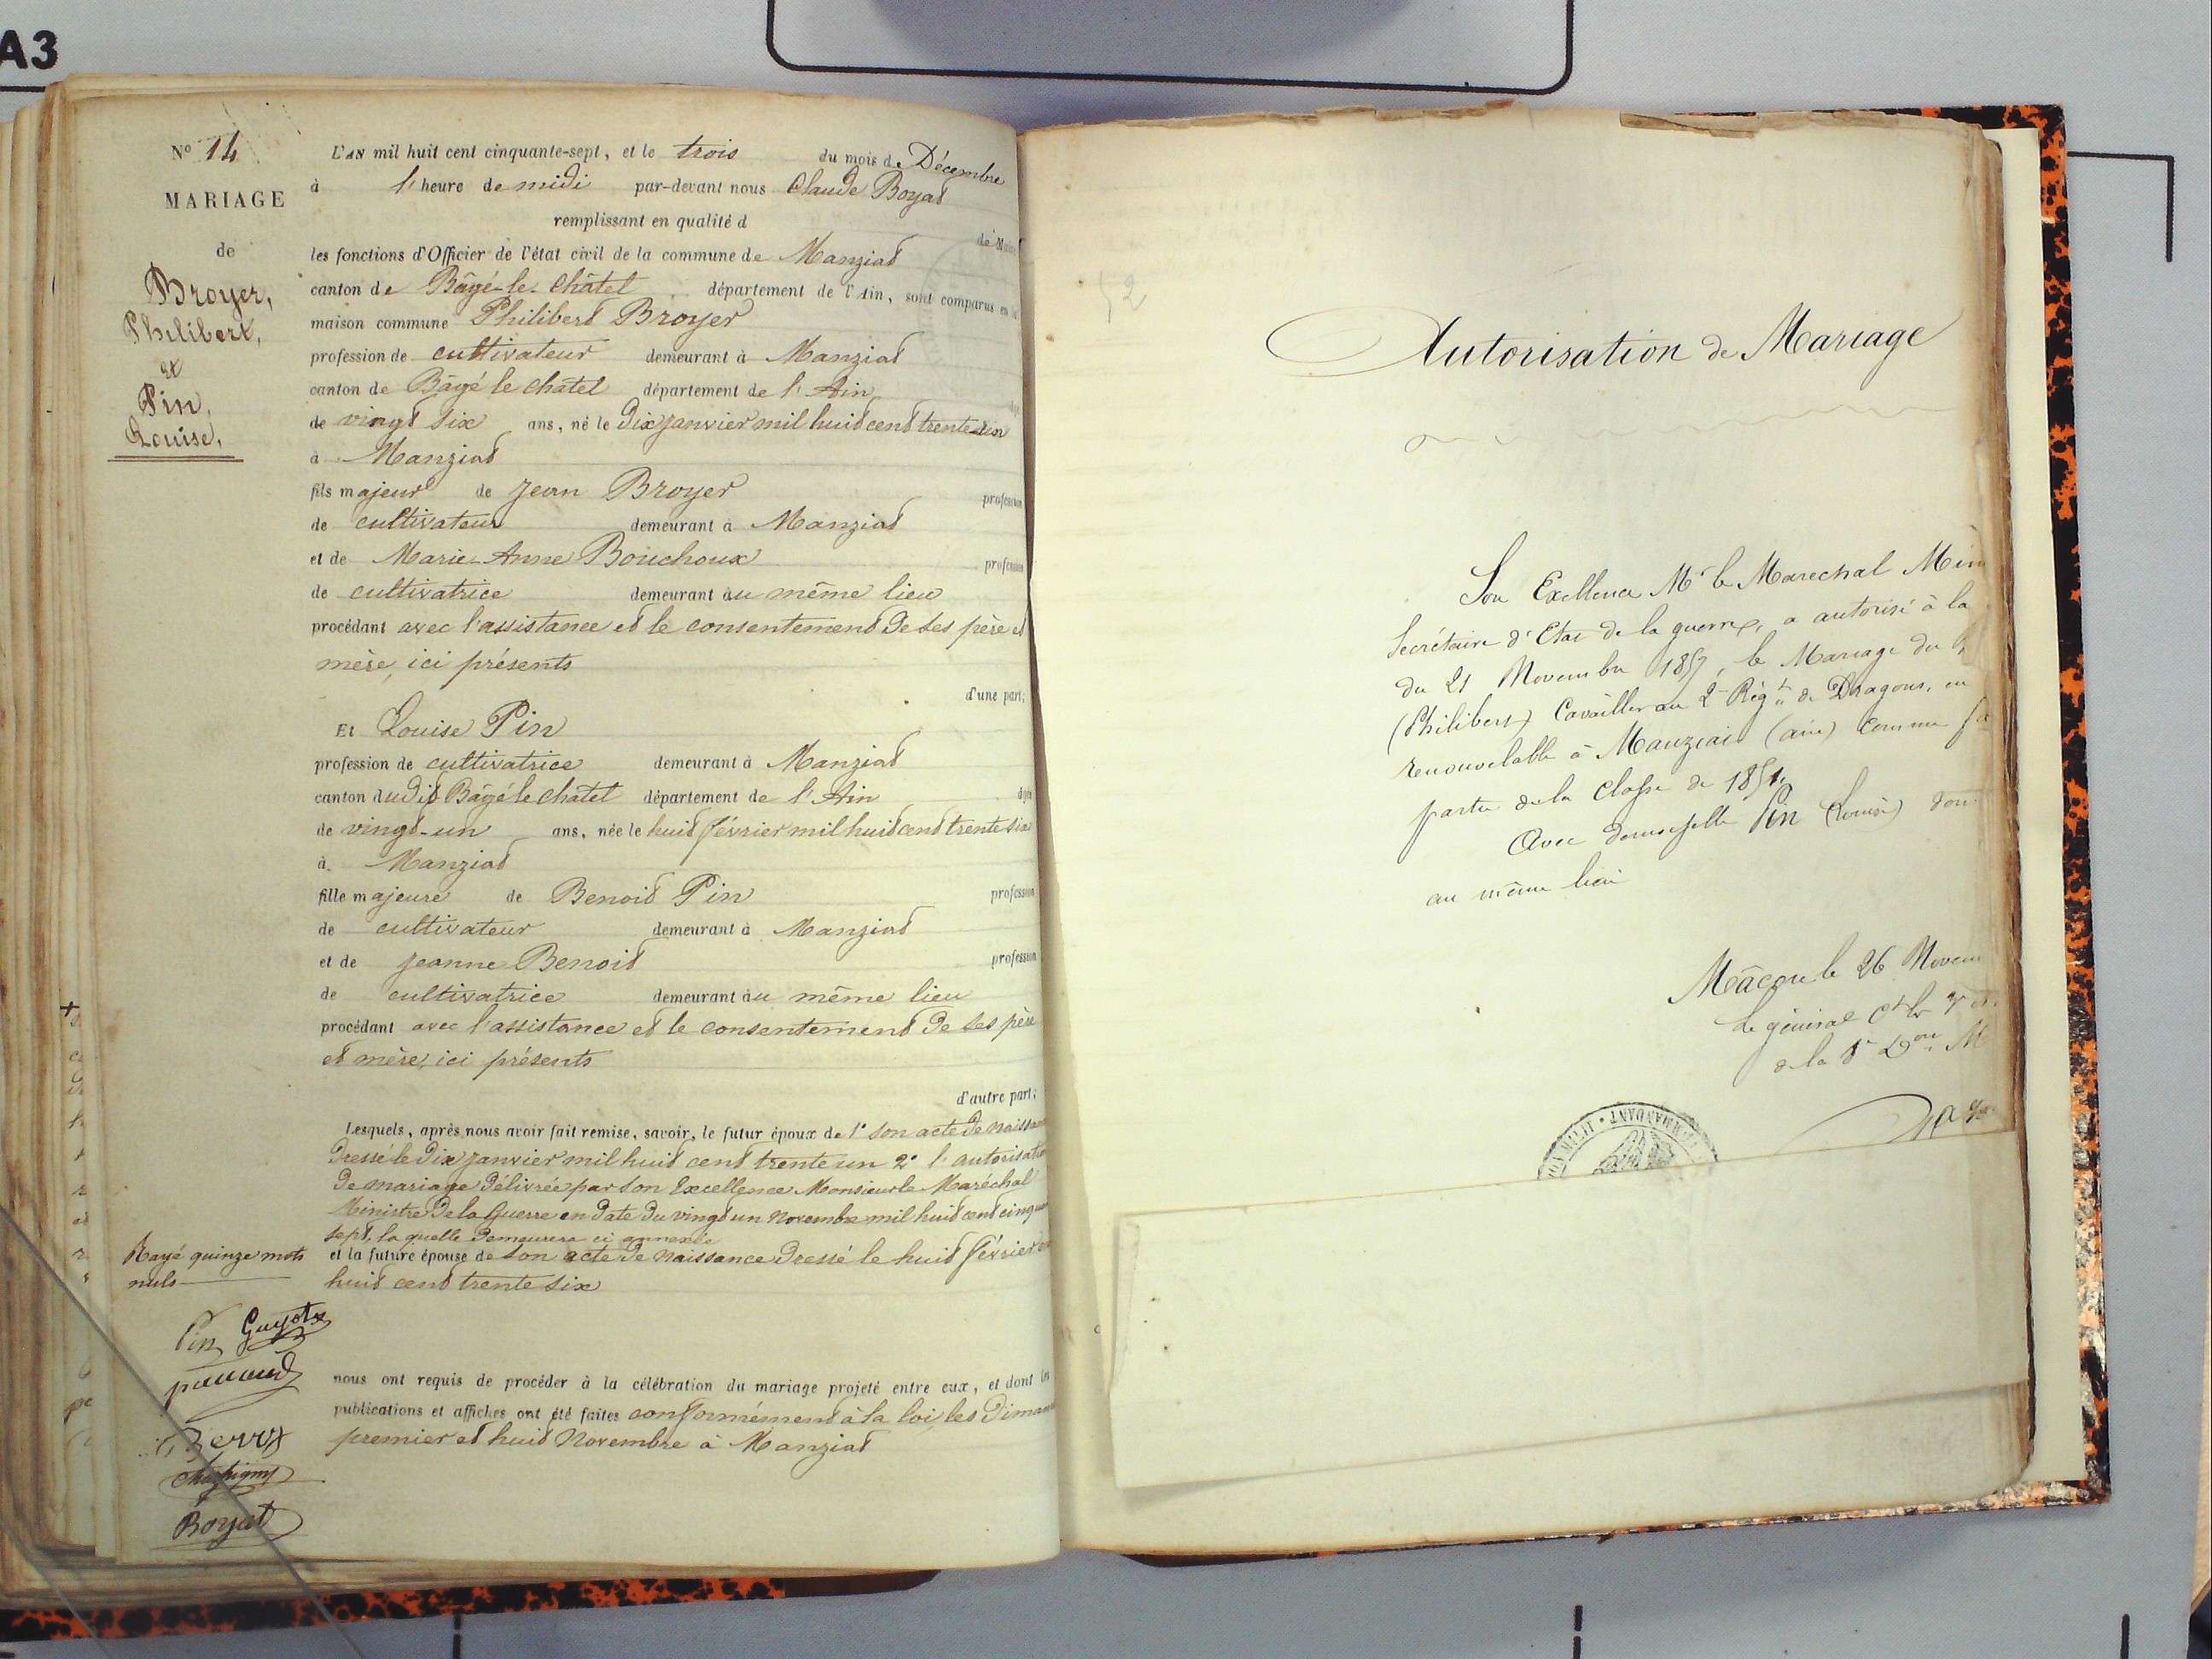 A3
N° 14
MARIAGE
de
Broyer,
Philibert,
et
Pin,
Louise.
L'AN mil huit cent cinquante-sept, et le trois du mois de Décembre
à l'heure de midi par-devant nous Claude Boyat
remplissant en qualité d
les fonctions d'Officier de l'état civil de la commune de Manziat
canton de Bâgé-le-Châtel département de l'Ain, sont comparus en la
maison commune Philibert Broyer
profession de cultivateur demeurant à Manziat
canton de Bâgé le châtel département de l'Ain
de vingt six ans, né le dix janvier mil huit cent trente-un
à Manziat
fils majeur de Jean Broyer profession
de cultivateur demeurant à Manziat
et de Marie-Anne Bouchoux profession
de cultivatrice demeurant au même lieu
procédant avec l'assistance et le consentement de ses père et
mère, ici présents
d'une part;
Et Louise Pin
profession de cultivatrice demeurant à Manziat
canton dudit Bâgé le châtel département de l'Ain
de vingt-un ans, née le huit février mil huit cent trente six
à Manziat
fille majeure de Benoit Pin profession
de cultivateur demeurant à Manziat
et de Jeanne Benoit profession
de cultivatrice demeurant au même lieu
procédant avec l'assistance et le consentement de ses père
et mère, ici présents
d'autre part;
Lesquels, après nous avoir fait remise, savoir, le futur époux de 1° son acte de naissan
dressé le dix janvier mil huit cent trente un 2° l'autorisati
de mariage délivrée par Son Excellence Monsieur le Maréchal
Ministre de la Guerre en date du vingt un novembre mil huit cent cinqu
sept, laquelle demeurera ci annexée
et la future épouse de son acte de naissance dressé le huit février
huit cent trente six
Rayé quinze mots
nuls
Pin Guyot
nous ont requis de procéder à la célébration du mariage projeté entre eux, et dont les
publications et affiches ont été faites conformément à la loi, les diman
premier et huit novembre à Manziat
Boyat
52
Autorisation de Mariage
Son Exellence Mr le Marechal Min
Secrétaire d'Etat de la guerre, a autorisé à la
du 21 Novembre 1857, le Mariage du
(Philibert) Cavallier au 2e Régt de Dragons, en
renouvelable à Manziat (ain) comme
partie de la classe de 1851,
Avec demoiselle Pin (Louise) dom
au même lieu
Mâcon le 26 Novem
Le général Ct la
de la 8e Don M